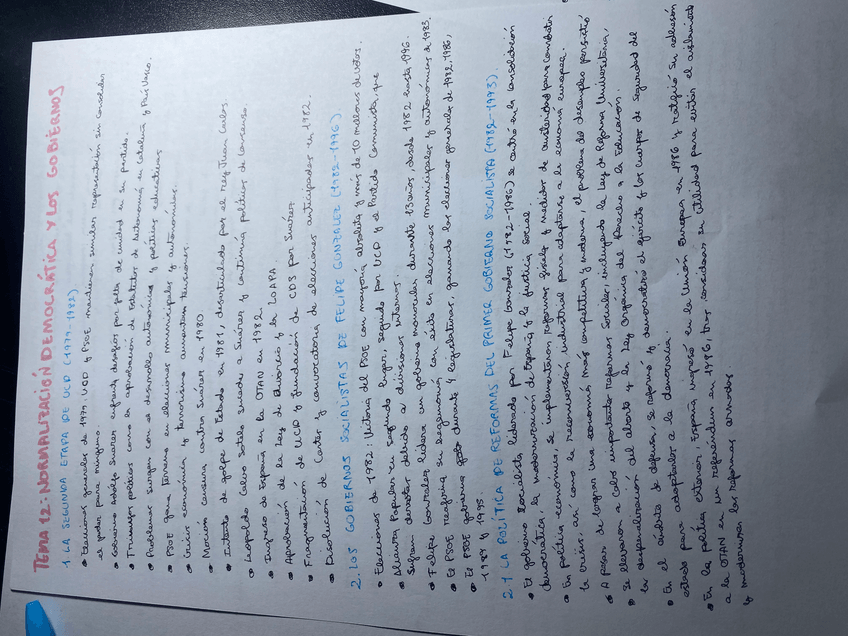 TEMA 12: NORMALIZACIÓN DEMOCRÁTICA Y LOS GOBIERNOS
1 LA SEGUNDA ETAPA DE UCD (1979-1982)
• Elecciones generales de 1979: UCD y PSOE mantienen similar representación sin consolidar
el poder para ninguno.
• Gobierno Adolfo Suárez enfrenta desafíos por falta de unidad en su partido.
• Triunfos políticos como en aprobación de Estatutos de Autonomía en Cataluña y País Vasco.
• Problemas surgen con el desarrollo autonómico y políticas educativas
• PSOE gana terreno en elecciones municipales y autonómicas.
• Crisis económica y terrorismo aumentan tensiones.
• Moción censura contra Suárez en 1980
• Intento de golpe de Estado en 1981, desarticulado por el rey Juan Carlos.
• Leopoldo Calvo Sotelo sucede a Suárez y continúa políticas de consenso.
• Ingreso de España en la OTAN en 1982
• Aprobación de la Ley de Divorcio y la LOAPA.
• Fragmentación de UCD y fundación de CDS por Suárez
• Disolución de Cortes y convocatoria de elecciones anticipadas en 1982.
2. LOS GOBIERNOS SOCIALISTAS DE FELIPE GONZÁLEZ (1982-1996)
• Elecciones de 1982: Victoria del PSOE con mayoría absoluta y más de 10 millones de votos.
• Alianza Popular en segundo lugar, seguido por UCD y el Partido Comunista, que
sufren derrotas debido a divisiones internas.
• Felipe González lidera un gobierno monocolor durante 13 años, desde 1982 hasta 1996.
• El PSOE reafirma su hegemonía con éxito en elecciones municipales y autonómicas de 1983.
• El PSOE gobierna durante 4 legislaturas, ganando las elecciones generales de 1982, 1986,
1989 y 1995
2.1 LA POLÍTICA DE REFORMAS DEL PRIMER GOBIERNO SOCIALISTA (1982-1993)
• El gobierno socialista liderado por Felipe González (1982-1986) se centró en la consolidación
democrática, la modernización de España y la justicia social.
• En política económica, se implementaron reformas fiscales y medidas de austeridad para combatir
la crisis, así como la reconversión industrial para adaptarse a la economía europea.
• A pesar de lograr una economía más competitiva y moderna, el problema del desempleo persistió
• Se llevaron a cabo importantes reformas sociales, incluyendo la Ley de Reforma Universitaria,
la despenalización del aborto y la Ley Orgánica del Derecho a la Educación.
• En el ámbito de defensa, se reformó y democratizó el ejército y los cuerpos de seguridad del
estado para adaptarlos a la democracia.
• En la política exterior, España ingresó en la Unión Europea en 1986 y ratificó su adhesión
a la OTAN en un referéndum en 1986, tras considerar su utilidad para evitar el aislamiento
y modernizar las reformas armadas